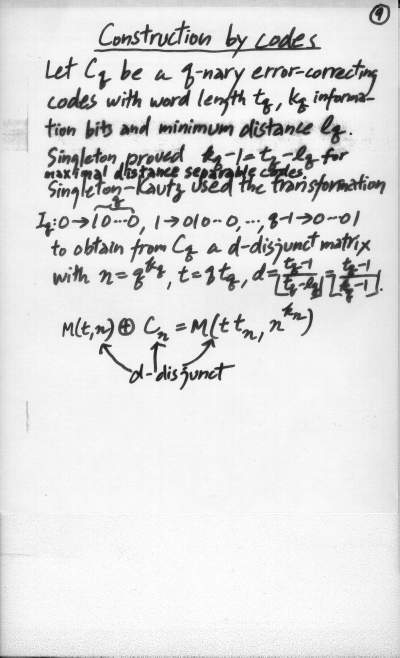 9
Construction by codes
Let C_q be a q-nary error-correcting
codes with word length t_q, k_q informa-
tion bits and minimum distance l_q.
Singleton proved k_q-1=t_q-l_q for
maximal distance separable codes.
Singleton-Kautz used the transformation
q
I_q:0→10···0, 1→010··0, ···, q-1→0··01
to obtain from C_q a d-disjunct matrix
with n=q^{k_q}, t=q t_q, d=⌊(t_q-1)/(t_q-l_q)⌋=⌊(t_q-1)/(k_q-1)⌋.
M(t,n)⊕ C_n = M(t t_n, n^{k_n})
d-disjunct